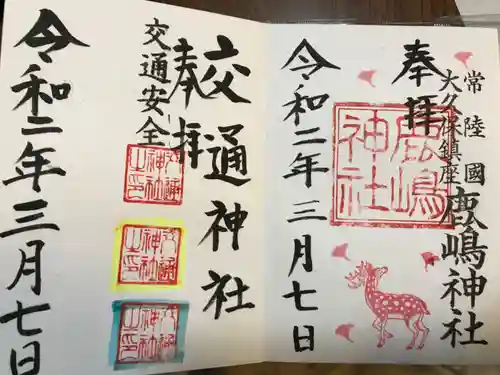 奉拝
常陸國
大久保鎮座
鹿嶋神社
鹿嶋神社
令和二年三月七日
交通神社
奉拝
交通安全
令和二年三月七日